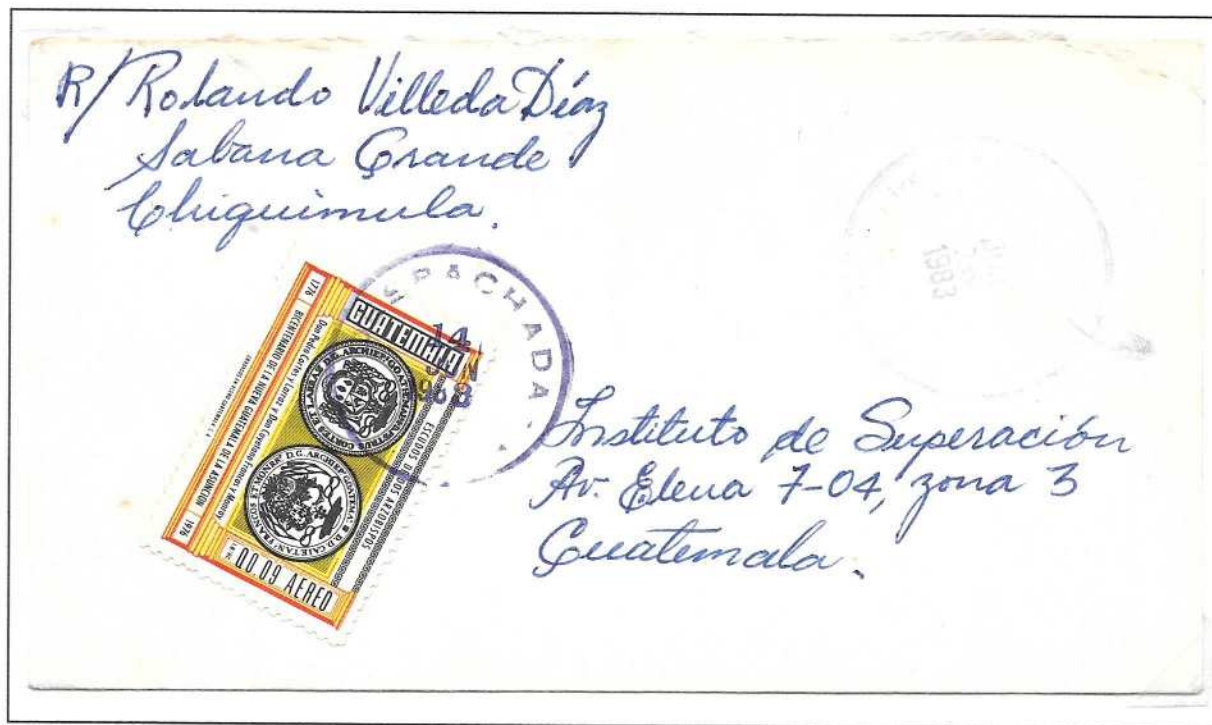 R/ Rolando Villeda Díaz
Sabana Grande
Chiquimula.
PACHADA
14
1983
GUATEMALA
ESCUDOS DE DOS ARZOBISPOS
Don Pedro Cortes y Larraz y Don Cayetano Francos y Monroy
1776 BICENTENARIO DE LA NUEVA GUATEMALA DE LA ASUNCION 1976
Q0.09 AEREO
Instituto de Superación
Av. Elena 7-04, zona 3
Guatemala.